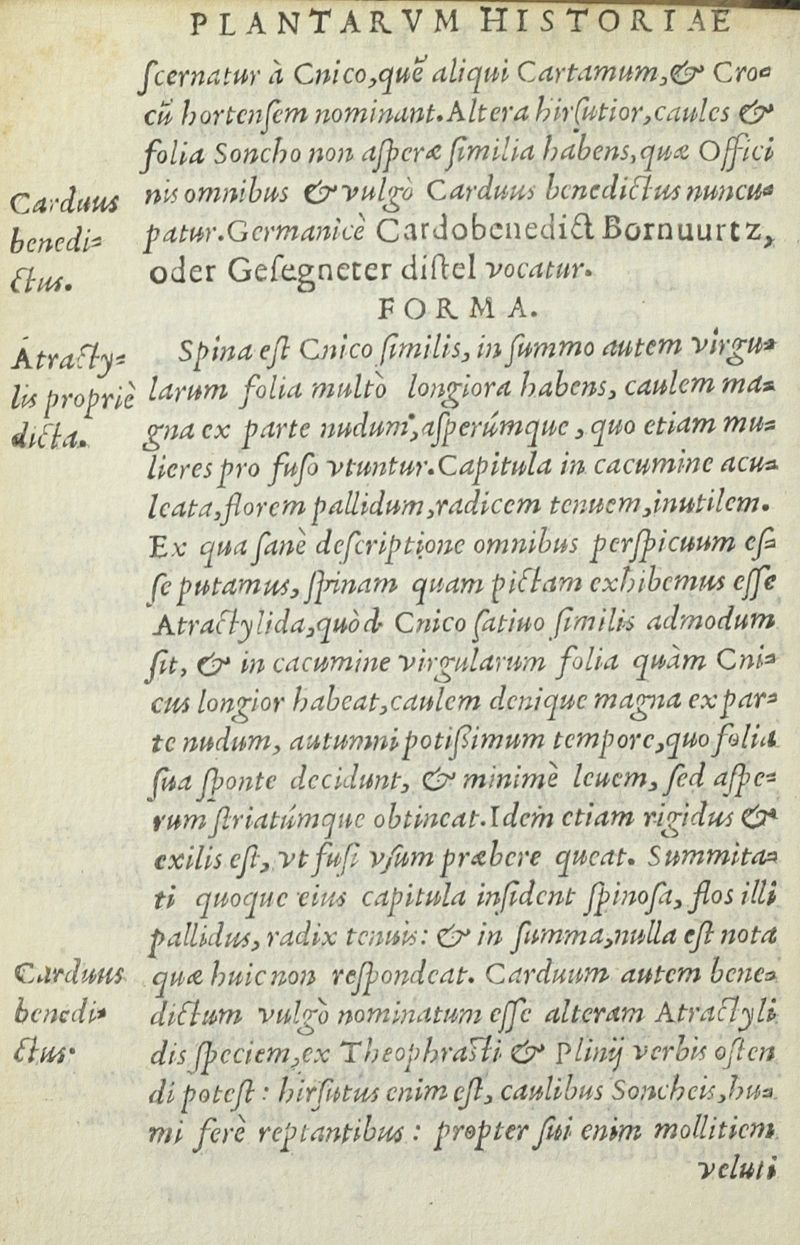 PLANTARVM HISTORIAE
ſcernatur à Cnico,quẽ aliqui Cartamum,& Cro-
cũ hortenſem nominant.Altera hirſutior,caules &
folia Soncho non aſperæ ſimilia habens,quæ Offici
nis omnibus & vulgò Carduus benedictus nuncu-
patur.Germanicè Cardobenedict Bornuurtz,
oder Geſegneter diſtel vocatur.
Carduus
benedi-
ctus.
FORMA.
Spina eſt Cnico ſimilis, in ſummo autem virgu-
larum folia multò longiora habens, caulem ma-
gna ex parte nudum,aſperúmque, quo etiam mu-
lieres pro fuſo vtuntur.Capitula in cacumine acu-
leata,florem pallidum,radicem tenuem,inutilem.
Ex qua ſanè deſcriptione omnibus perſpicuum eſ-
ſe putamus, ſpinam quam pictam exhibemus eſſe
Atractylida,quòd Cnico ſatiuo ſimilis admodum
ſit, & in cacumine virgularum folia quàm Cni-
cus longior habeat,caulem denique magna ex par-
te nudum, autumni potißimum tempore,quo folia
ſua ſponte decidunt, & minimè leuem, ſed aſpe-
rum ſtriatúmque obtineat.Idem etiam rigidus &
exilis eſt, vt fuſi vſum præbere queat. Summita-
ti quoque eius capitula inſident ſpinoſa, flos illi
pallidus, radix tenuis: & in ſumma,nulla eſt nota
quæ huic non reſpondeat. Carduum autem bene-
dictum vulgò nominatum eſſe alteram Atractyli
dis ſpeciem,ex Theophraſti & Plinij verbis oſten
di poteſt: hirſutus enim eſt, caulibus Soncheis,hu-
mi ferè reptantibus: propter ſui enim mollitiem
veluti
Atracty-
lis propriè
dicta.
Carduus
benedi-
ctus.